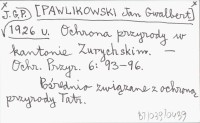 J.G.P. [PAWLIKOWSKI Jan Gwalbert]
1926 u. Ochrona przyrody w
kantonie Zurychskim. —
Ochr. Przyr. 6: 93-96.
Pośrednio związane z ochroną
przyrody Tatr.